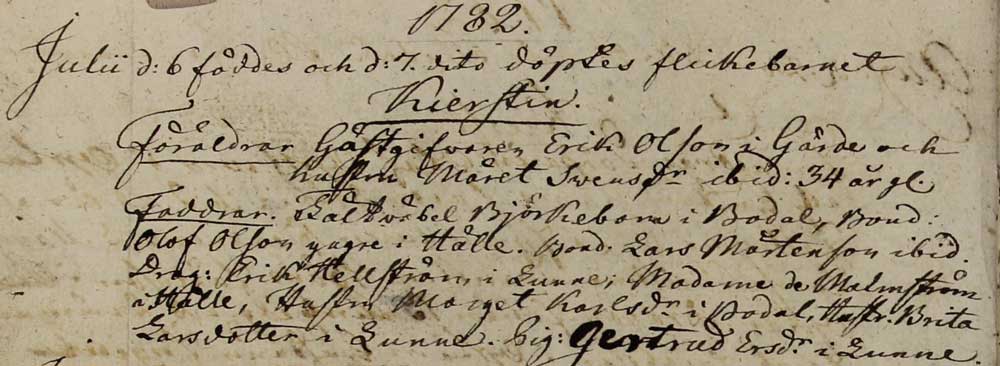 1782.
Julii d: 6 föddes och d: 7. dito döptes flickebarnet
Kierstin.
Föräldrar Gästgifvaren Erik Olsson i Gärde och
hustru Märet Swensdr ibid: 34 år gl.
Faddrar. Fältväbel Björkebom i Bodal, Bond:
Olof Olsson yngre i Hälle. Bond. Lars Mårtenson ibid.
Drag: Erik Hellström i Lunne; Madame de Malmström
i Hälle, Hustru Marget Karlsdr i Bodal, Hustr. Brita
Larsdotter i Lunne. Pig: Gertrud Ersdr i Lunne.